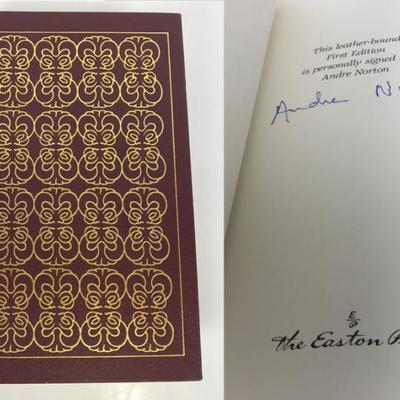 This leather-bound
First Edition
is personally signed
Andre Norton
Andre N
E
P
the Easton P